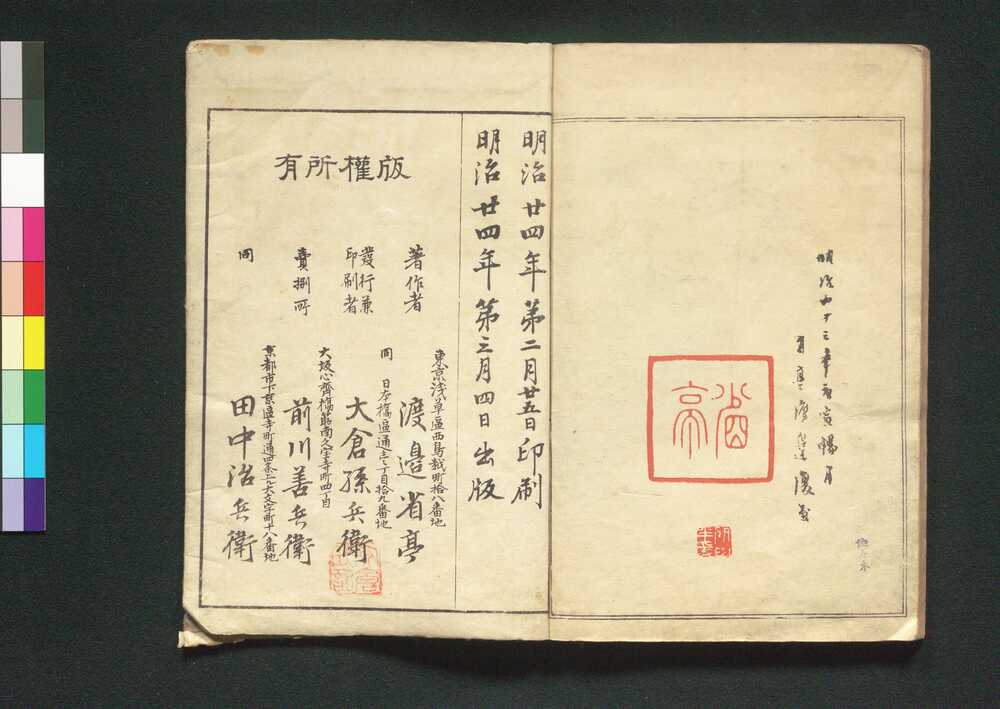 明治廿三年庚寅陽月
省亭
明治廿四年第二月廿五日印刷
明治廿四年第三月四日出版
版權所有
著作者
東京浅草區西鳥越町拾八番地
渡邉省亭
發行兼
印刷者
同 日本橋區通壱丁目拾九番地
大倉孫兵衛
賣捌所
大坂心齋橋筋南久宝寺町四丁目
前川善兵衛
同
京都市下京區寺町通四条上ル大文字町十八番地
田中治兵衛